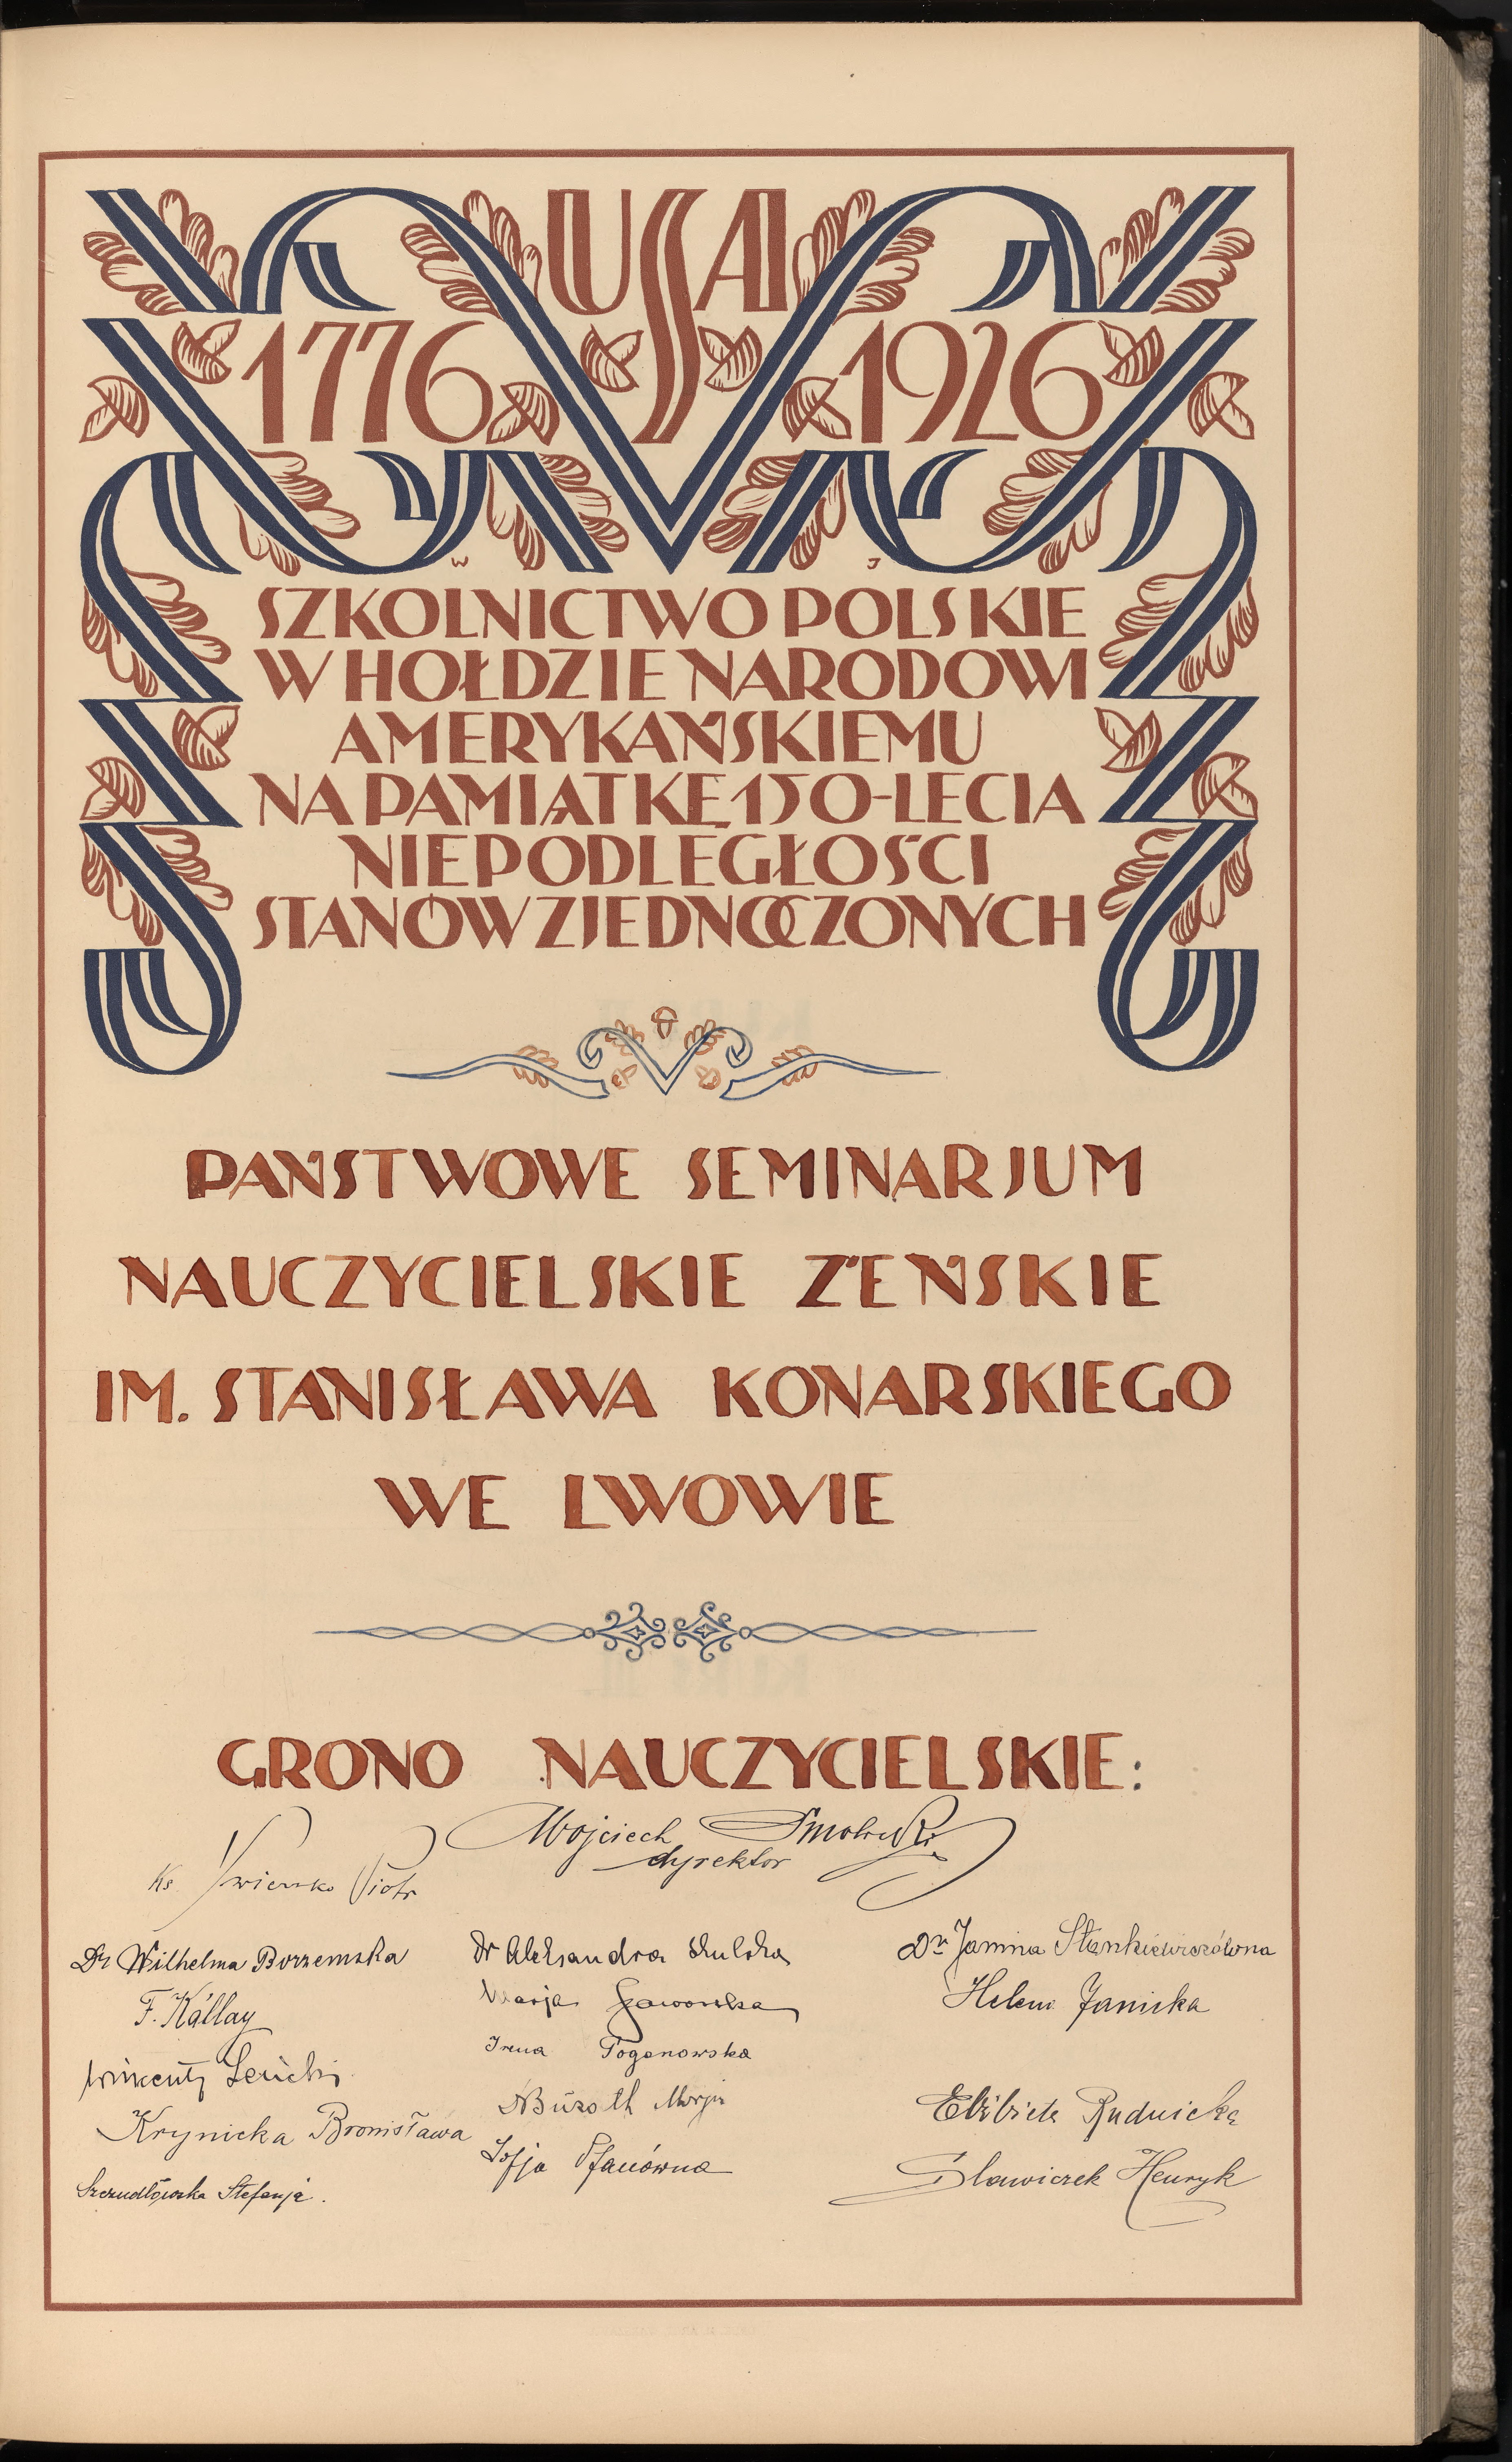 USA
1776 1926
W J
SZKOLNICTWO POLSKIE
W HOŁDZIE NARODOWI
AMERYKAŃSKIEMU
NA PAMIĄTKĘ 150-LECIA
NIEPODLEGŁOŚCI
STANÓW ZJEDNOCZONYCH
PAŃSTWOWE SEMINARJUM
NAUCZYCIELSKIE ŻEŃSKIE
IM. STANISŁAWA KONARSKIEGO
WE LWOWIE
GRONO NAUCZYCIELSKIE:
Wojciech
dyrektor
Ks Piotr
Dr Wilhelma Borzemska
F. Kállay
Wincenty
Krynicka Bronisława
Stefanja.
Dr Aleksandra
Marja
Irena Pogonowska
Marja
Zofja Pfauówna
Dr Janina Stankiewiczówna
Helena Janicka
Elżbieta Rudnicka
Slawiczek Henryk